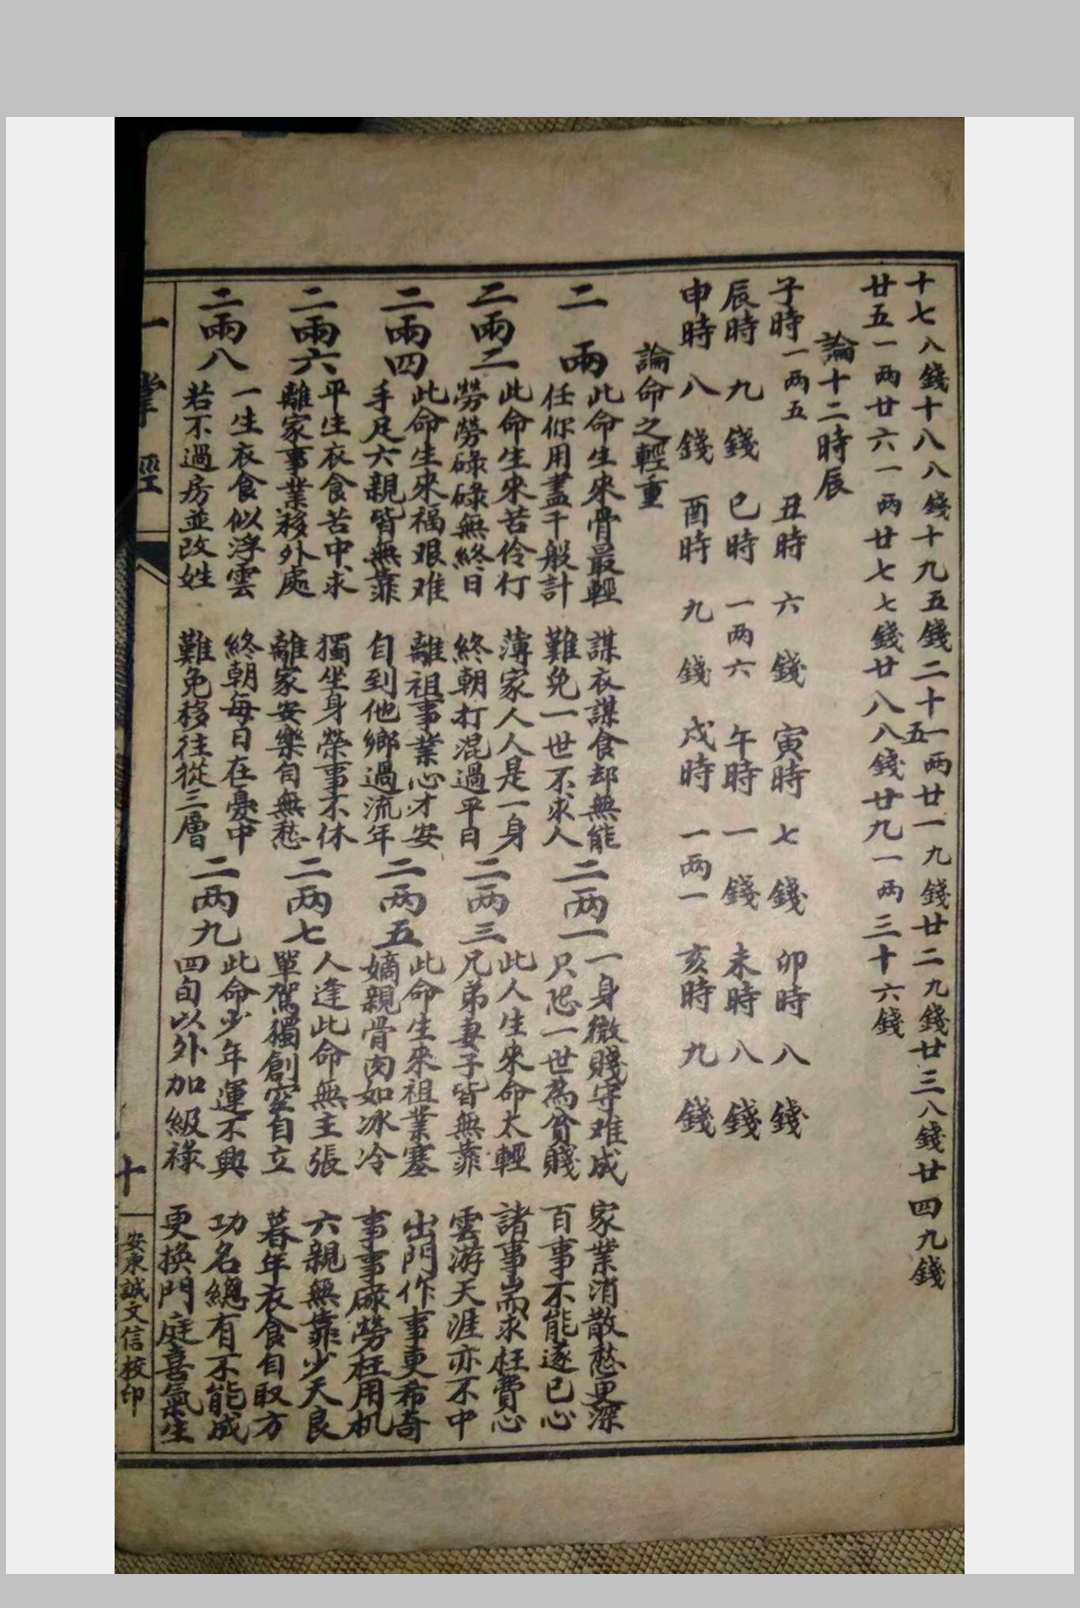 十七八錢十八八錢十九五錢二十一两廿一九錢廿二九錢廿三八錢廿四九錢
五
廿五一两廿六一两廿七七錢廿八八錢廿九一两三十六錢
論十二時辰
子時一两五 丑時六錢 寅時七錢 卯時八錢
辰時九錢 巳時一两六 午時一錢 未時八錢
申時八錢 酉時九錢 戌時一两一 亥時九錢
論命之輕重
二兩
此命生來骨最輕 謀衣謀食却無能
任你用盡千般計 難免一世不求人
二两一
一身微賤守难成 家業消散愁更深
只恐一世為貧賤 百事不能遂已心
二兩二
此命生來苦伶仃 薄家人人是一身
勞勞碌碌無終日 終朝打混過平日
二两三
此人生來命太輕 諸事耑求枉費心
兄弟妻子皆無靠 雲游天涯亦不中
二兩四
此命生來福艰难 離祖事業心才安
手足六親皆無靠 自到他鄉過流年
二两五
此命生來祖業塞 出門作事更希奇
嫡親骨肉如冰冷 事事碌勞枉用机
二兩六
平生衣食苦中求 獨坐身榮事不休
離家事業移外處 離家安樂自無愁
二两七
人逢此命無主張 六親無靠少天良
單駕獨創空自立 暮年衣食自取方
二兩八
一生衣食似浮雲 終朝每日在憂中
若不過房並改姓 難免移往從三層
二两九
此命少年運不興 功名總有不能成
四旬以外加級祿 更換門庭喜氣生
一掌經
十
安東誠文信校印